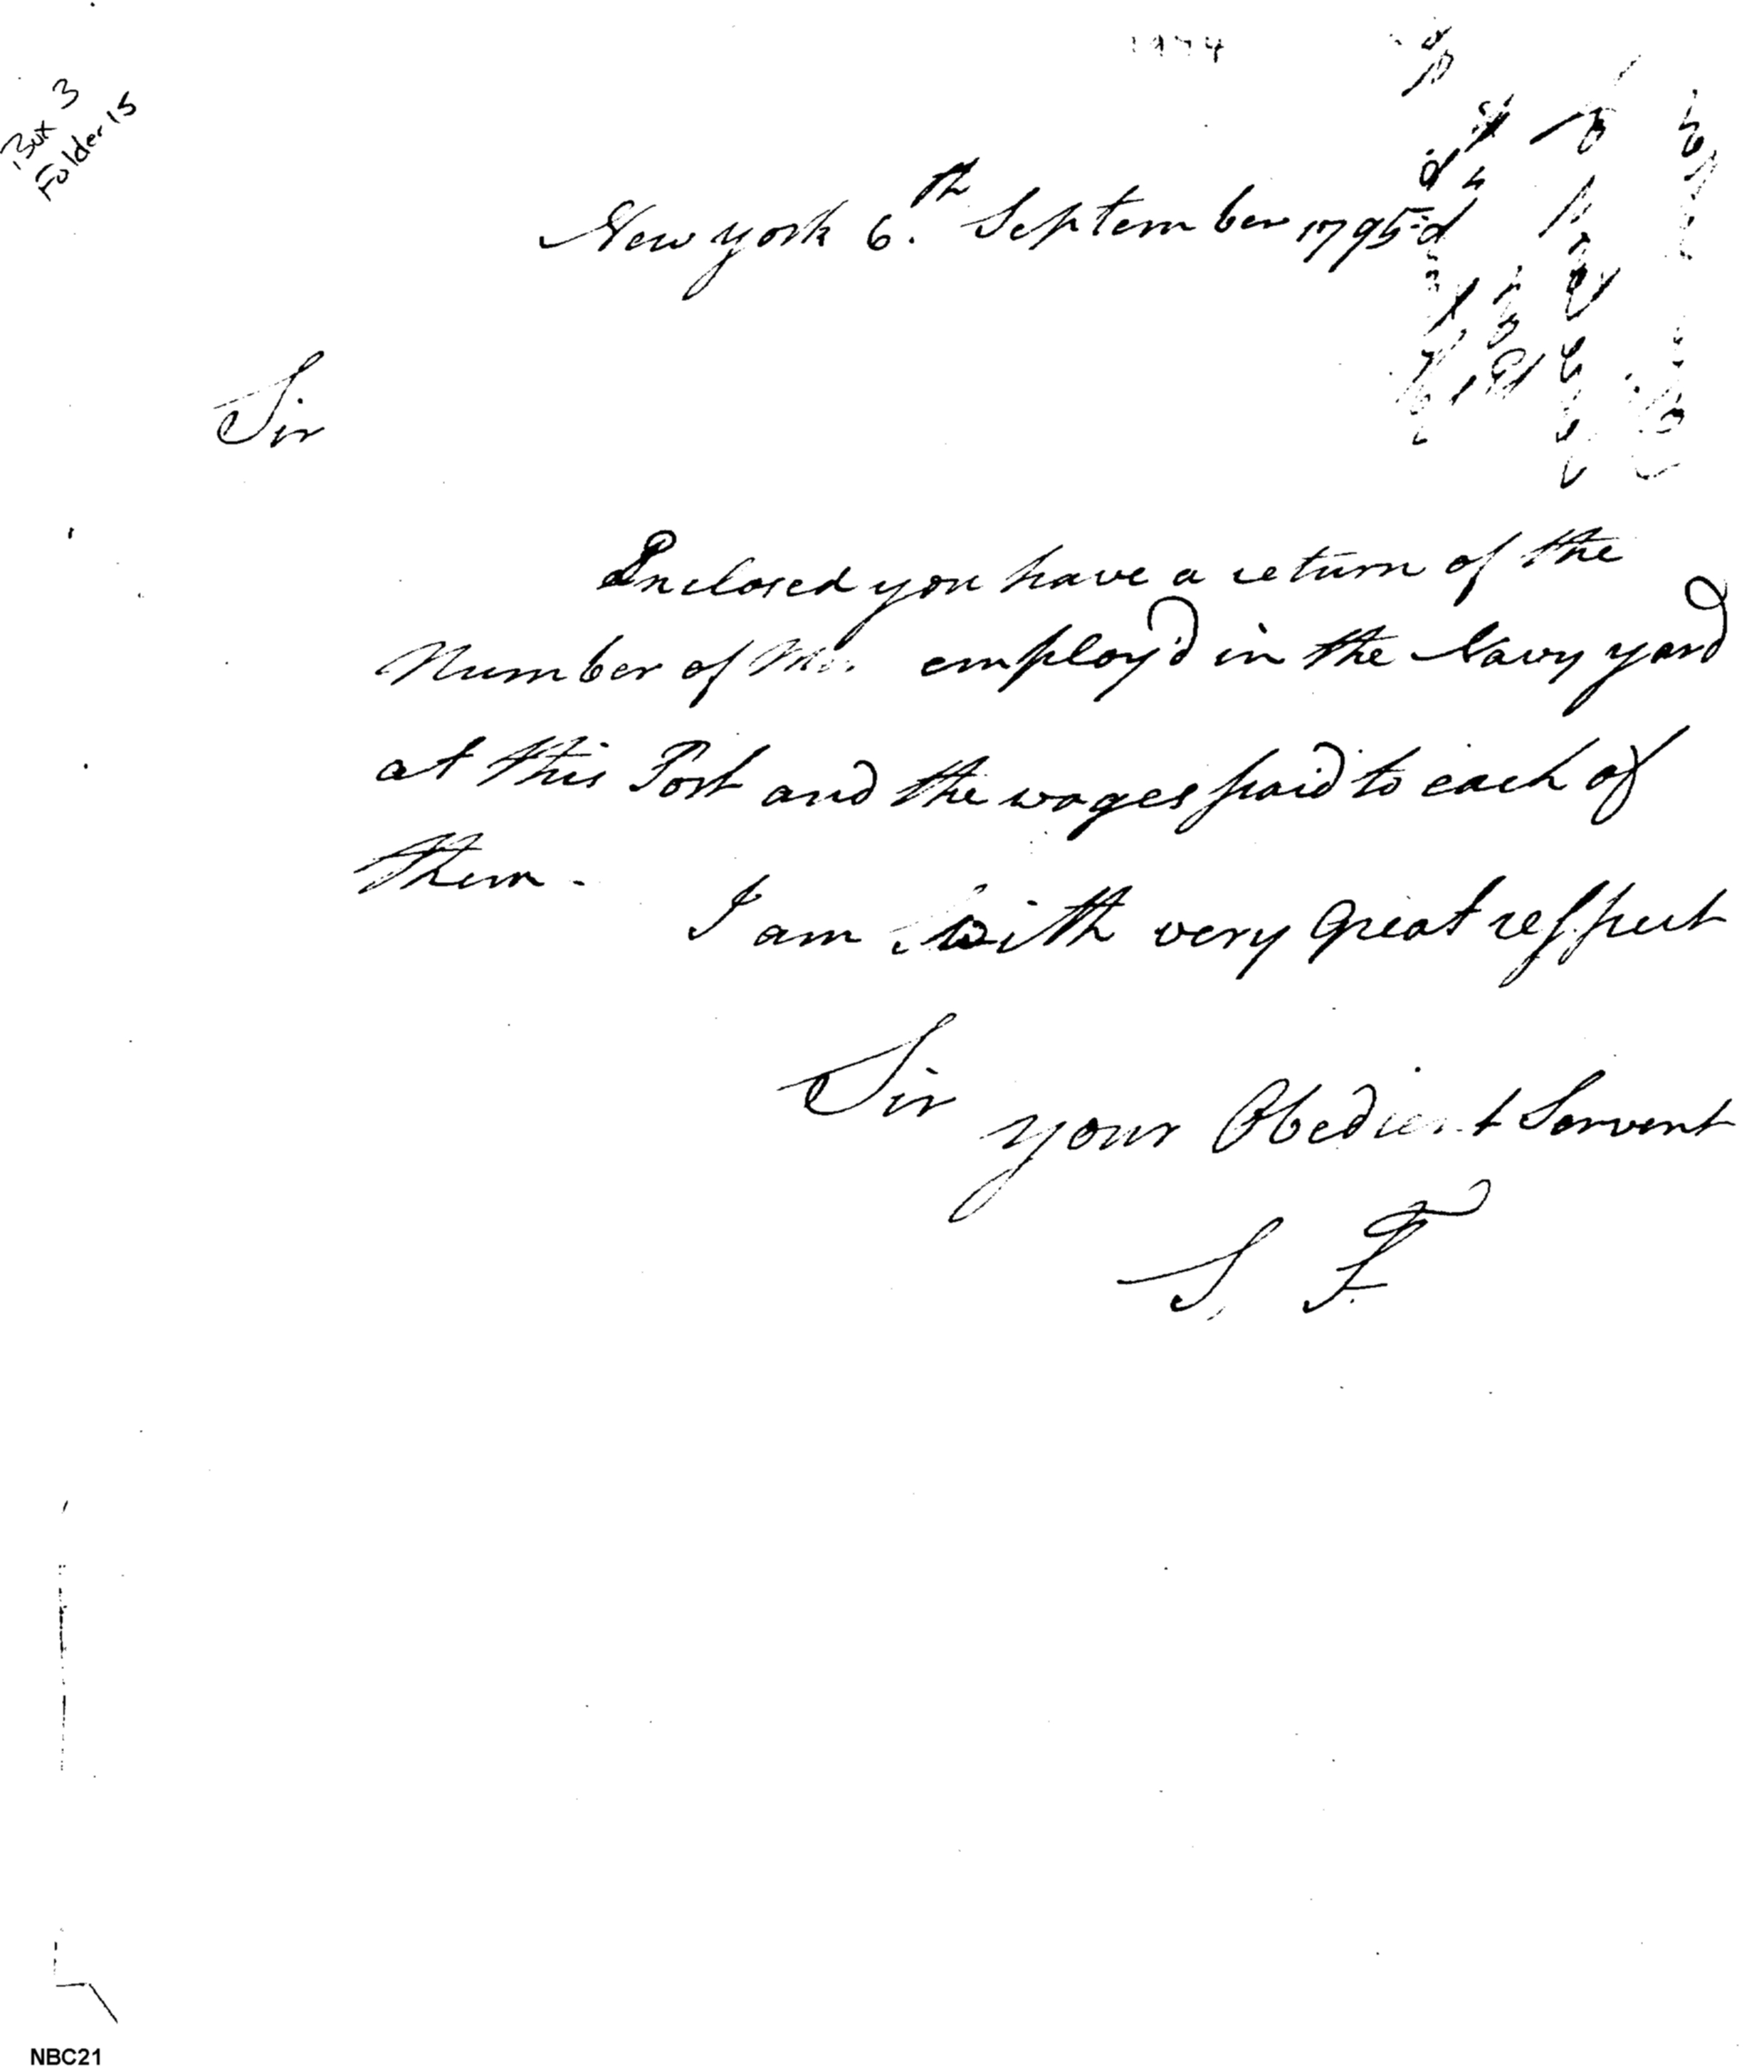 Box 3
Folder 15
New york 6.th September 1795
Sir
Enclosed you have a return of the
Number of employ'd in the Navy yard
at this Port and the wages paid to each of
them -
I am with very Great respect
Sir
your Obedient Servent
S F
NBC21